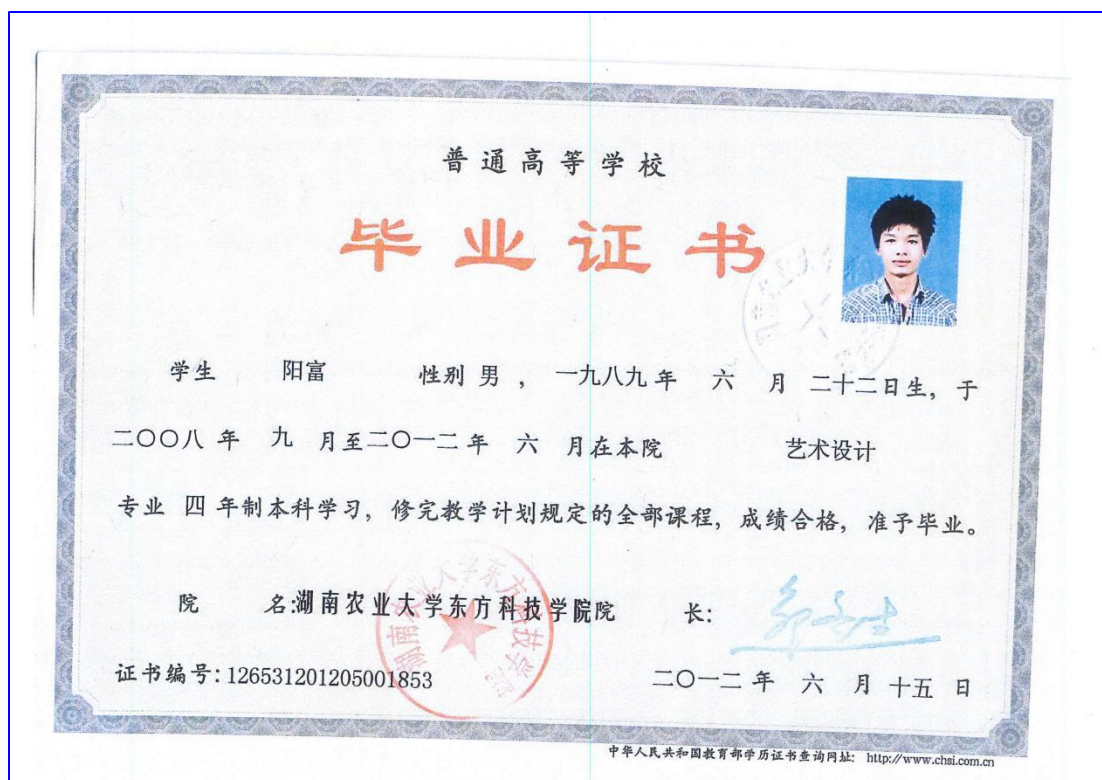 普通高等学校
毕业证书
学生 阳富 性别 男 ， 一九八九 年 六 月 二十二日生，于
二〇〇八 年 九 月至二〇一二 年 六 月在本院 艺术设计
专业 四 年制本科学习，修完教学计划规定的全部课程，成绩合格，准予毕业。
院 名:湖南农业大学东方科技学院院 长:
湖南农业大学东方科技学院
证书编号:126531201205001853 二〇一二 年 六 月 十五 日
中华人民共和国教育部学历证书查询网址: http://www.chsi.com.cn